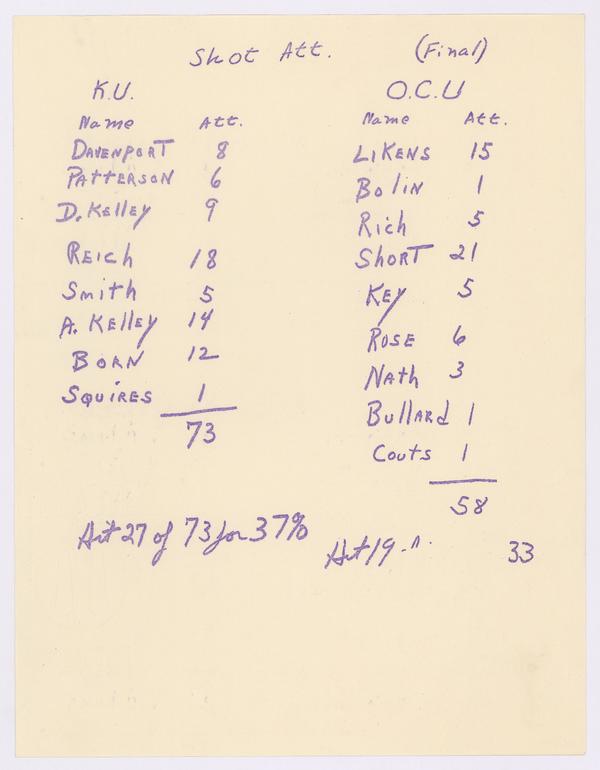 Shot Att. (Final)
K.U.
Name Att.
DAVENPORT 8
PATTERSON 6
D. Kelley 9
REICH 18
Smith 5
A. KELLEY 14
BORN 12
SQUIRES 1
73
Hit 27 of 73 for 37%
O.C.U
Name Att.
LIKENS 15
Bolin 1
Rich 5
SHORT 21
KEY 5
ROSE 6
NATH 3
BullARd 1
Couts 1
58
Hit 19 33